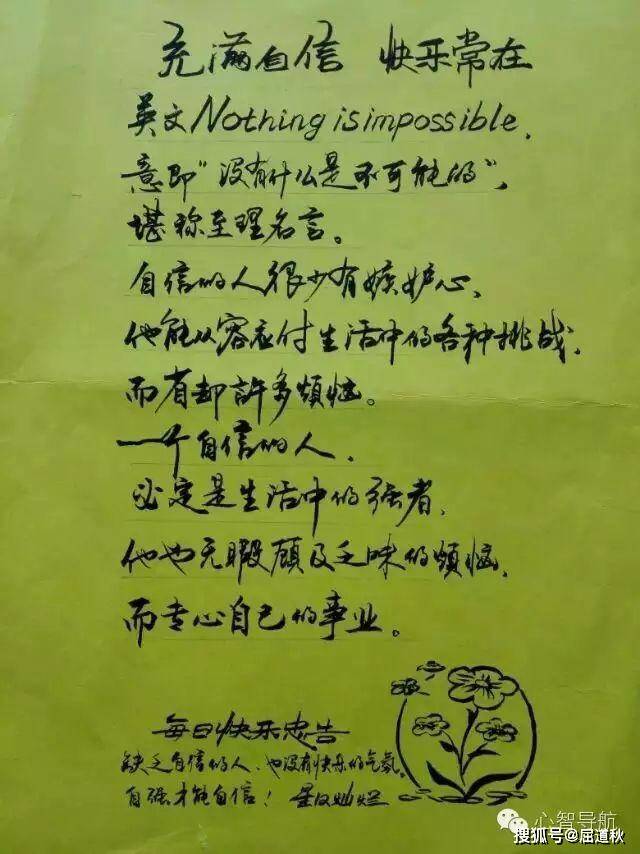 充满自信 快乐常在
英文Nothing is impossible,
意即“没有什么是不可能的”,
堪称至理名言。
自信的人很少有嫉妒心,
他能从容应付生活中的各种挑战,
而省却許多煩恼。
一个自信的人,
必定是生活中的强者,
他也无暇顾及乏味的烦恼,
而专心自己的事业。
每日快乐忠告
缺乏自信的人、也没有快乐的气氛。
自强才能自信！ 星汉灿烂
心智导航
搜狐号@屈道秋